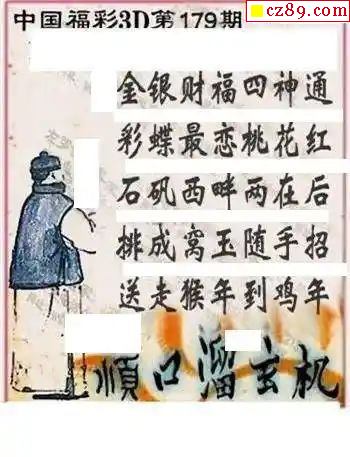 cz89.com
中国福彩3D第179期
金银财福四神通
彩蝶最恋桃花红
石矶西畔两在后
排成窝玉随手招
送走猴年到鸡年
順口溜玄机